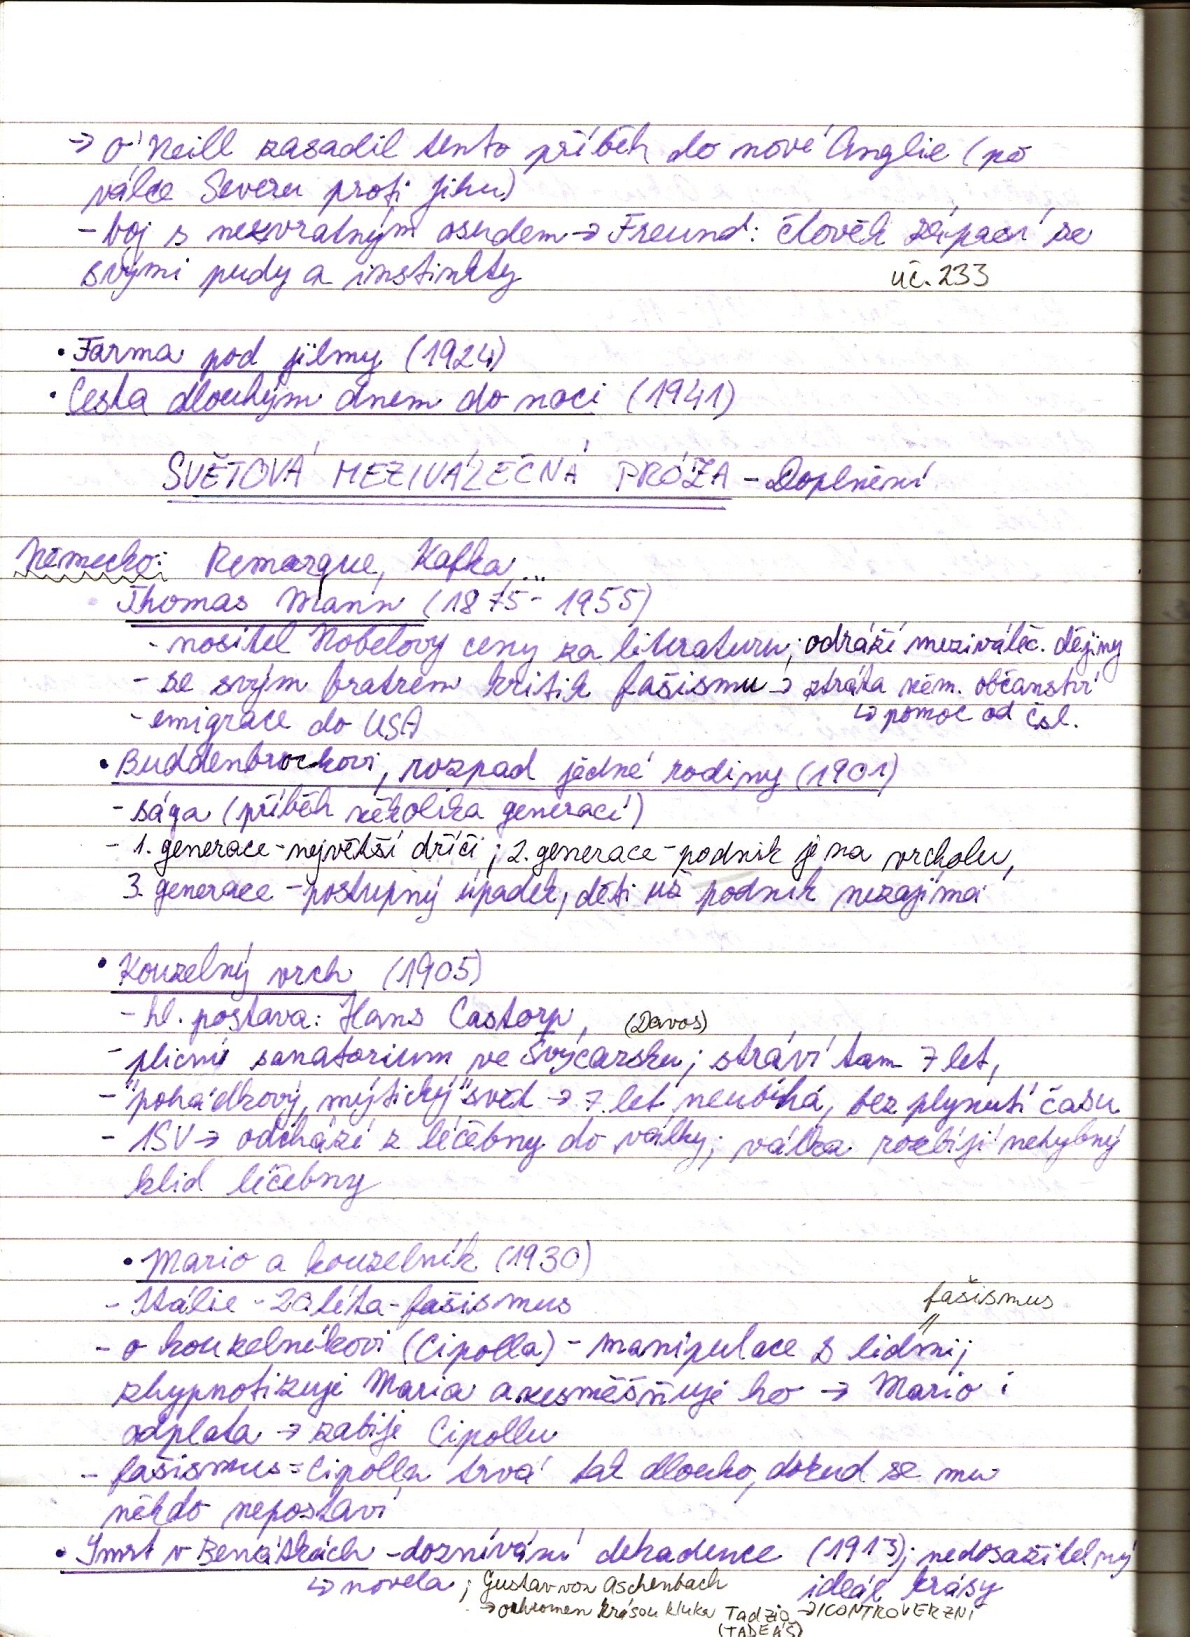 → O'Neill zasadil tento příběh do nové Anglie (po
válce Severu proti jihu)
- boj s nezvratným osudem → Freund: člověk zápasí se
svými pudy a instinkty
uč. 233
• Farma pod jilmy (1924)
• Cesta dlouhým dnem do noci (1941)
SVĚTOVÁ MEZIVÁLEČNÁ PRÓZA - Doplnění
Německo: Remarque, Kafka, ...
Thomas Mann (1875 - 1955)
- nositel Nobelovy ceny za literaturu; odráží meziváleč. dějiny
- se svým bratrem kritik fašismu → ztráta něm. občanství
↳ pomoc od čsl.
- emigrace do USA
• Buddenbrockovi, rozpad jedné rodiny (1901)
- sága (příběh několika generací)
- 1. generace - největší dříči; 2. generace - podnik je na vrcholu,
3. generace - postupný úpadek, děti už podnik nezajímá
• Kouzelný vrch (1905)
- hl. postava: Hans Castorp, (Davos)
- plicní sanatorium ve Švýcarsku; stráví tam 7 let,
- "pohádkový, mýtický" svět → 7 let neubíhá, bez plynutí času
- 1SV → odchází z léčebny do války; válka rozbíjí nehybný
klid léčebny
• Mario a kouzelník (1930)
- Itálie - 20. léta - fašismus
fašismus
- o kouzelníkovi (Cipolla) - manipulace s lidmi;
zhypnotizuje Maria a zesměšňuje ho → Mario i
odplata → zabije Cipollu
- fašismus = Cipolla trvá tak dlouho, dokud se mu
někdo nepostaví
• Smrt v Benátkách - doznívání dekadence (1913); nedosažitelný
ideál krásy
↳ novela; Gustav von Aschenbach
→ ochromen krásou kluka Tadzio → KONTROVERZNÍ
(TADEÁŠ)